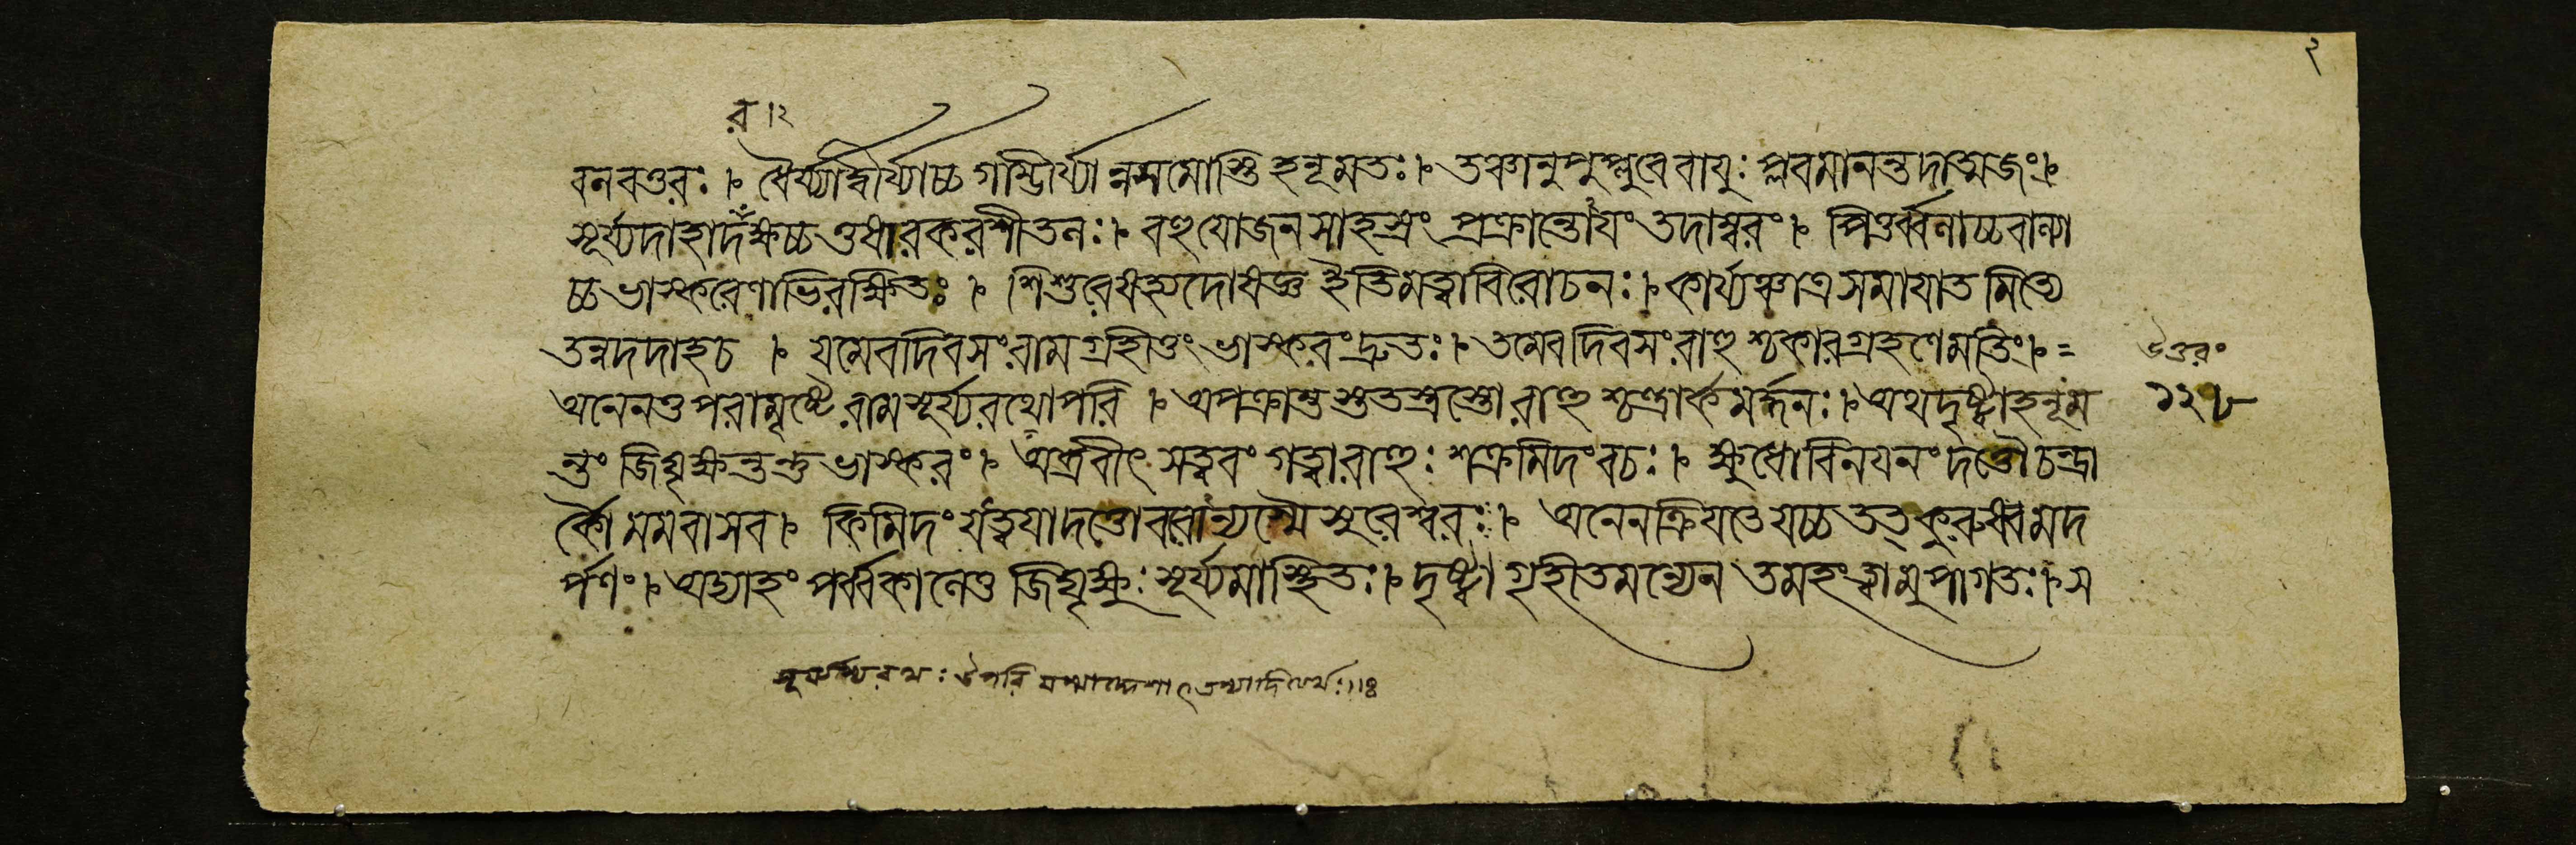 ২
র ৷ ২
বনবত্তরঃ ৷ ধৈর্য্যাদ্বীর্য্যাচ্চ গাম্ভীর্য্যান্নসমোস্তি হনূমতঃ ৷ তঞ্চানুপুপ্লুবেবাযুঃ প্লবমানন্তদাত্মজং ৷
সূর্য্যদাহাদ্রক্ষচ্চ তুধারকরশীতনঃ ৷ বহুযোজনসাহস্রং প্রক্রান্তোযং তদাম্বরং ৷ পিতুর্ব্বনাচ্চবান্যা
চ্চ ভাস্করেণাভিরক্ষিতঃ ৷ শিশুরেষহ্যদোষজ্ঞ ইতিমত্বাবিরোচনঃ ৷ কার্য্যঞ্চাত্র সমাযাত মিত্যে
তন্নদদাহচ ৷ যমেবদিবসংরাম গ্রহীতুং ভাস্করংদ্রুতঃ ৷ তমেবদিবসংরাহু শ্চকারগ্রহণেমতিং ৷ =
অনেনতু পরামৃষ্টে রামসূর্য্যরথোপরি ৷ অপক্রান্ত স্তুতস্ত্রস্তো রাহু শ্চন্দ্রার্কমর্দ্দনঃ ৷ অথদৃষ্ট্বাহনূম
ন্তং জিঘৃক্ষন্তন্তু ভাস্করং ৷ অব্রবীৎ সত্বরং গত্বারাহুঃ শক্রমিদংবচঃ ৷ ক্ষুধোবিনযনং দত্তৌ চন্দ্রা
র্কৌ মমবাসব ৷ কিমিদং যত্ত্বযাদত্তোবরোন্যস্মৈ সুরেশ্বরঃ ৷ অনেনক্রিযতেযচ্চ তত্ কুরুষ্বমদ
র্পণং ৷ অদ্যাহং পর্ব্বকানেতু জিঘৃক্ষুঃ সূর্য্যমাস্থিতঃ ৷ দৃষ্ট্বা গৃহীতমন্যেন তমহংত্বামুপাগতঃ ৷ স
উত্তরং
১২৮
সূর্য্যস্য রথঃ উপরি